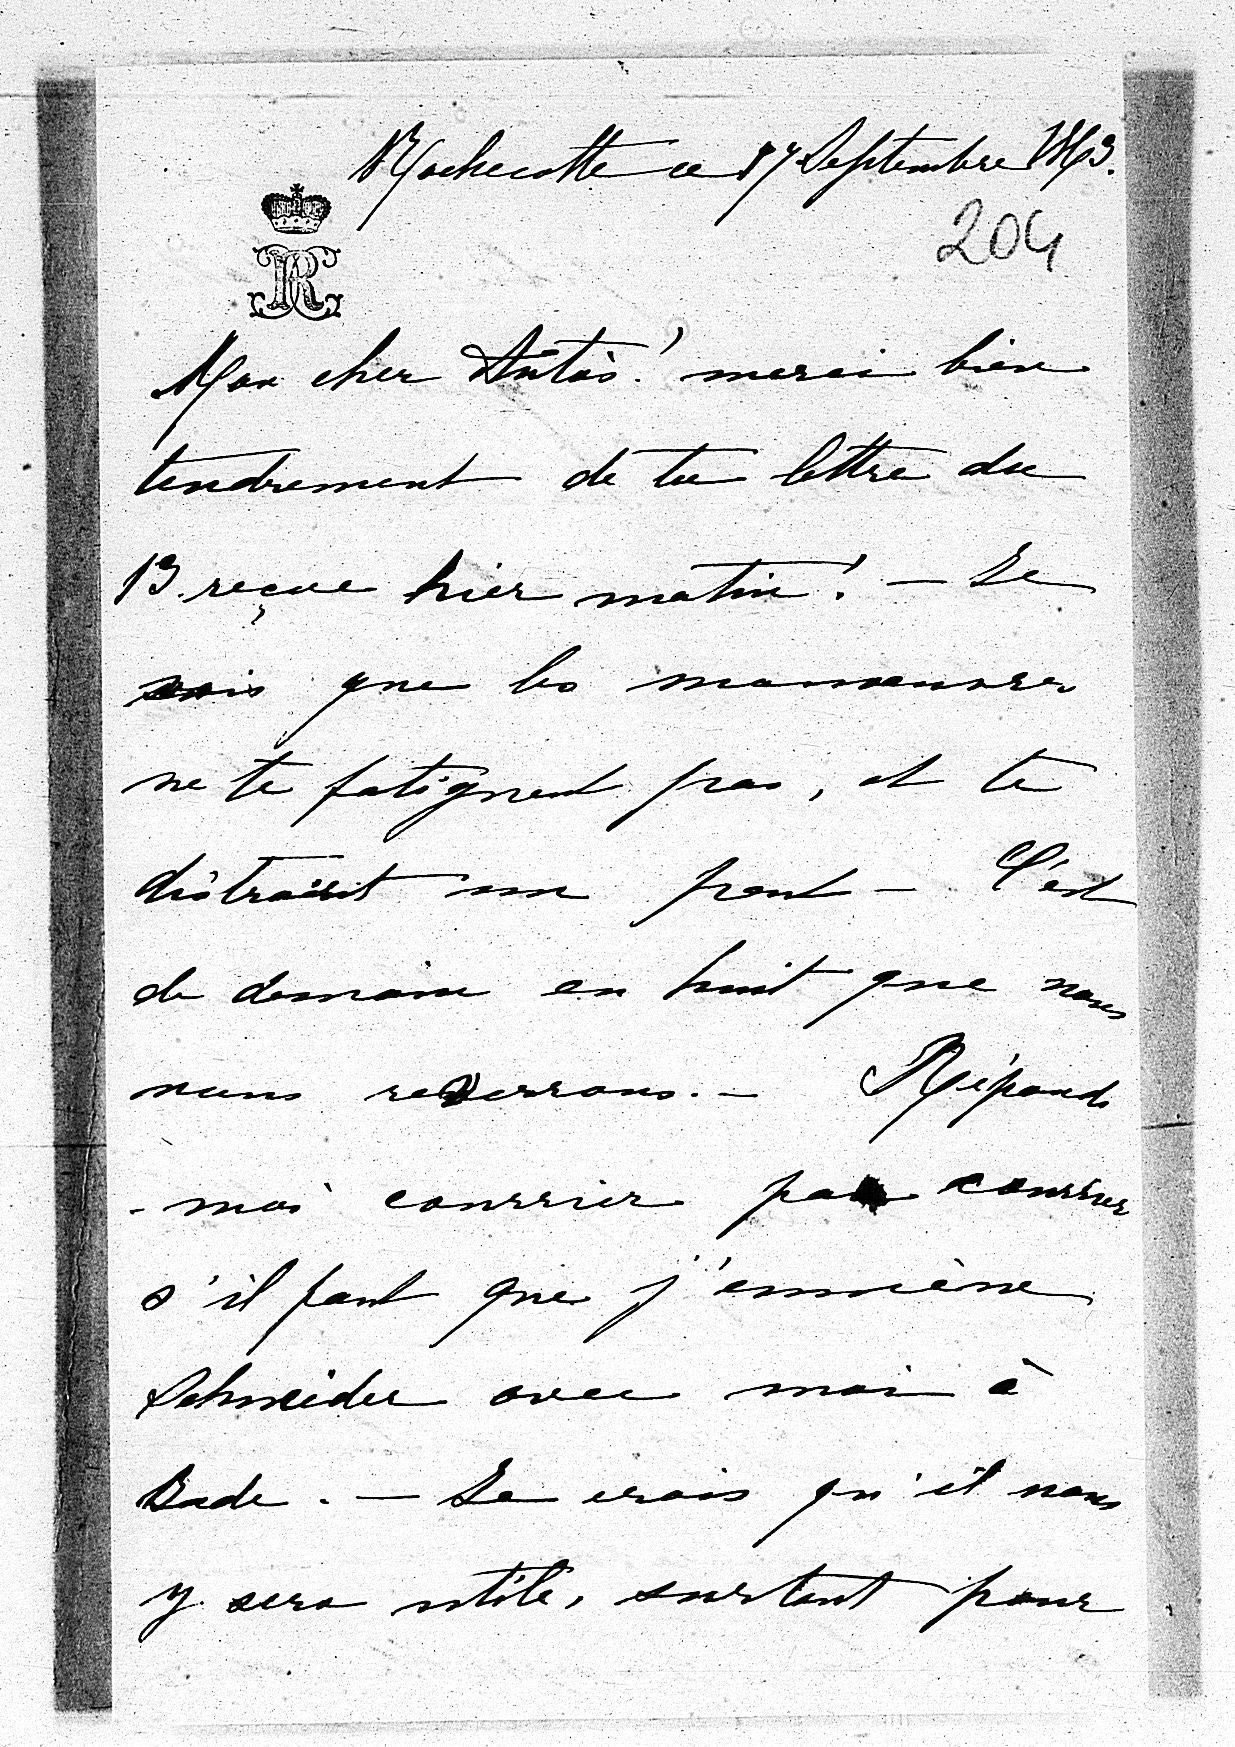 Rochecotte ce 17 Septembre
204
Mon cher Antos! merci bien
tendrement de ta lettre du
13. reçue hier matin! — Je
vois que les manoeuvres
ne te fatiguent pas, et te
distraient un peu — C'est
de demain en huit que nous
nous reverrons. — Réponds
-moi courrier par courrier
s'il faut que j'emmène
Schneider avec moi à
Bade. — Je crois qu'il nous
y sera utile, surtout pour